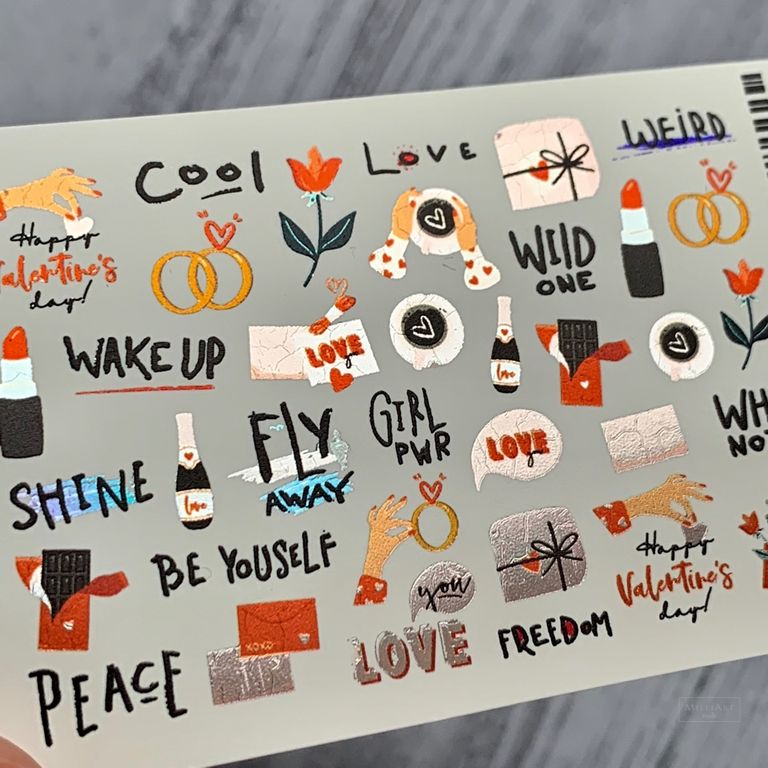 WEIRD
Cool
LOVE
Happy
Valentine's
day!
WILD
ONE
WAKE UP
LOVE
you
love
GIRL
PWR
FLY
AWAY
LOVE
you
WH
NOT
SHINE
love
BE YOUSELF
Happy
Valentine's
day!
you
XOXO
LOVE
FREEDOM
PEACE